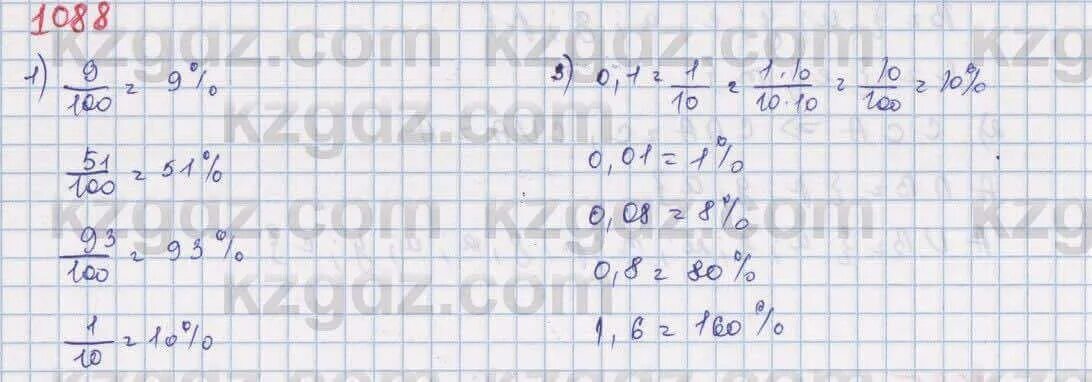 1088
1) 9/100 = 9%
51/100 = 51%
93/100 = 93%
1/10 = 10%
3) 0,1 = 1/10 = 1·10/10·10 = 10/100 = 10%
0,01 = 1%
0,08 = 8%
0,8 = 80%
1,6 = 160%
kzgdz.com
kzgdz.com
kzgdz.com
kzgdz.com
kzgdz.com
kzgdz.com